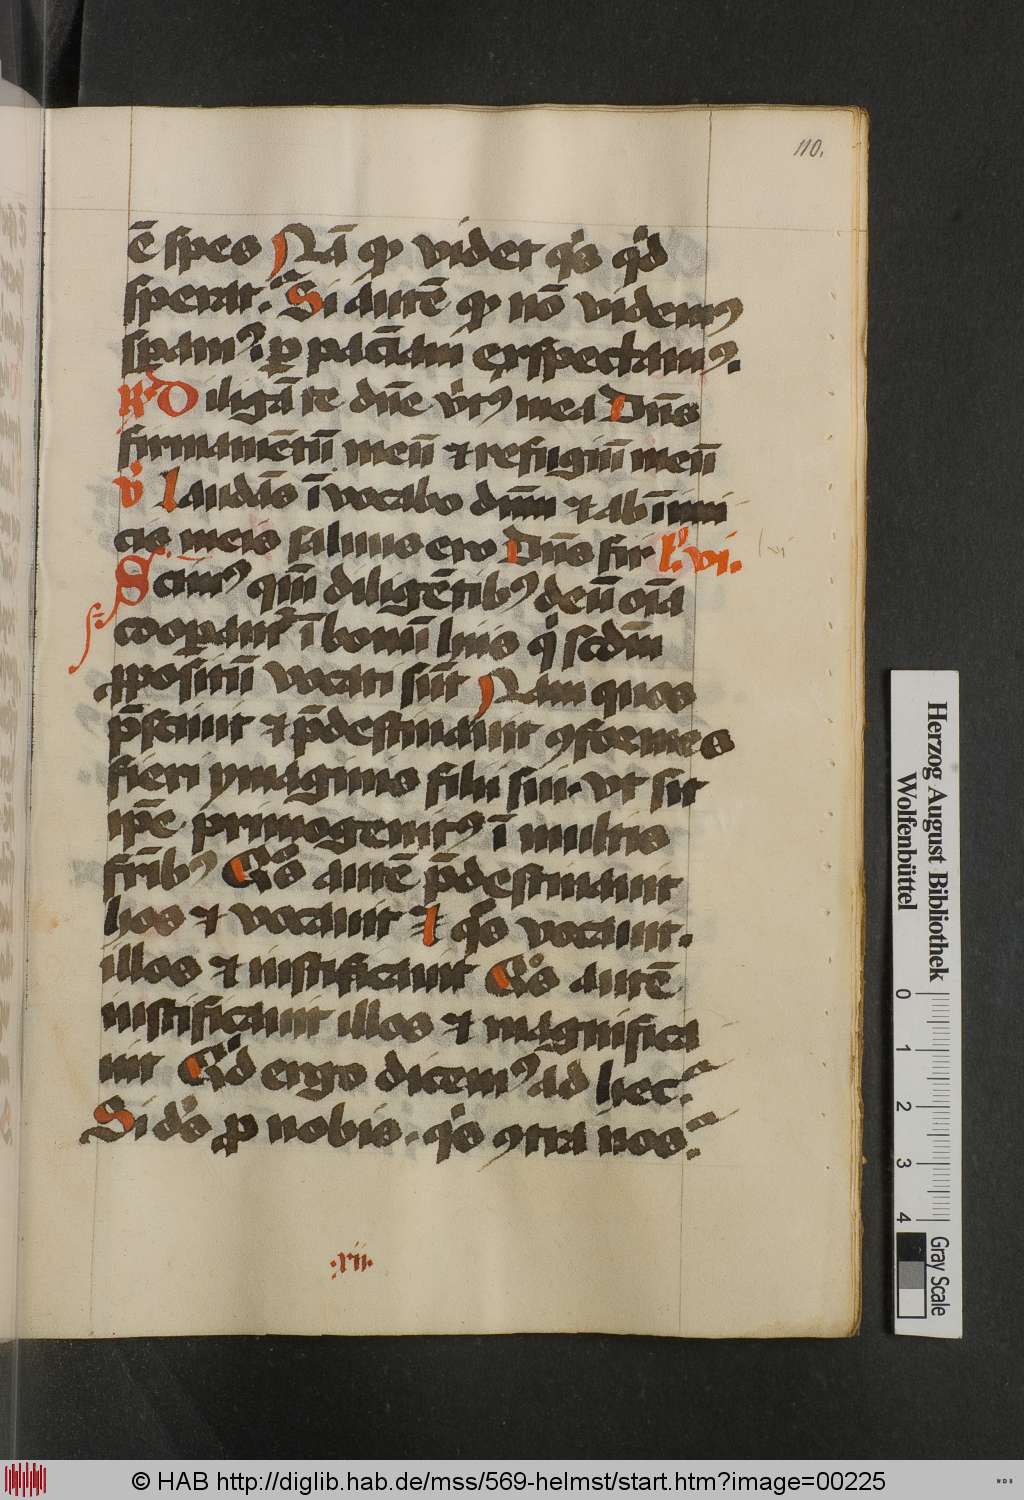 110.
ē spes Nā qͥ videt qͥs qͥd
sperat. Si autē qͥ nō videmꝰ
sꝑamꝰ. ꝑ paciam exspectamꝰ.
R Diligā te dn̄e vͥtꝰ mea Dn̄s
firmamētū meū et refugiū meū
v Laudās īvocabo dn̄m et ab īimi
cis meis saluus ero Dn̄s fir lͦ. vi.
Scimꝰ qm̄ diligētibꝰ deū oīa
cooꝑant ī bonū hiis qͥ scdm̄
ꝓpositū vocati sūt Nam quos
p̄sciuit et p̄destinauit ꝯformes
fieri ymaginis filii sui. vt sit
ip̄e primogenitꝰ ī multis
fr̄ibꝰ Qͦs autē p̄destinauit
hos et vocauit et qͦs vocauit.
illos et iustificauit Qͦs autē
iustificauit illos et magnifica
uit Qͥd ergo dicemꝰ ad hec.
Si dͥs ꝓ nobis. qͥs ꝯtra nos.
.xii.
Herzog August Bibliothek
Wolfenbüttel
0 1 2 3 4
Gray Scale
© HAB http://diglib.hab.de/mss/569-helmst/start.htm?image=00225